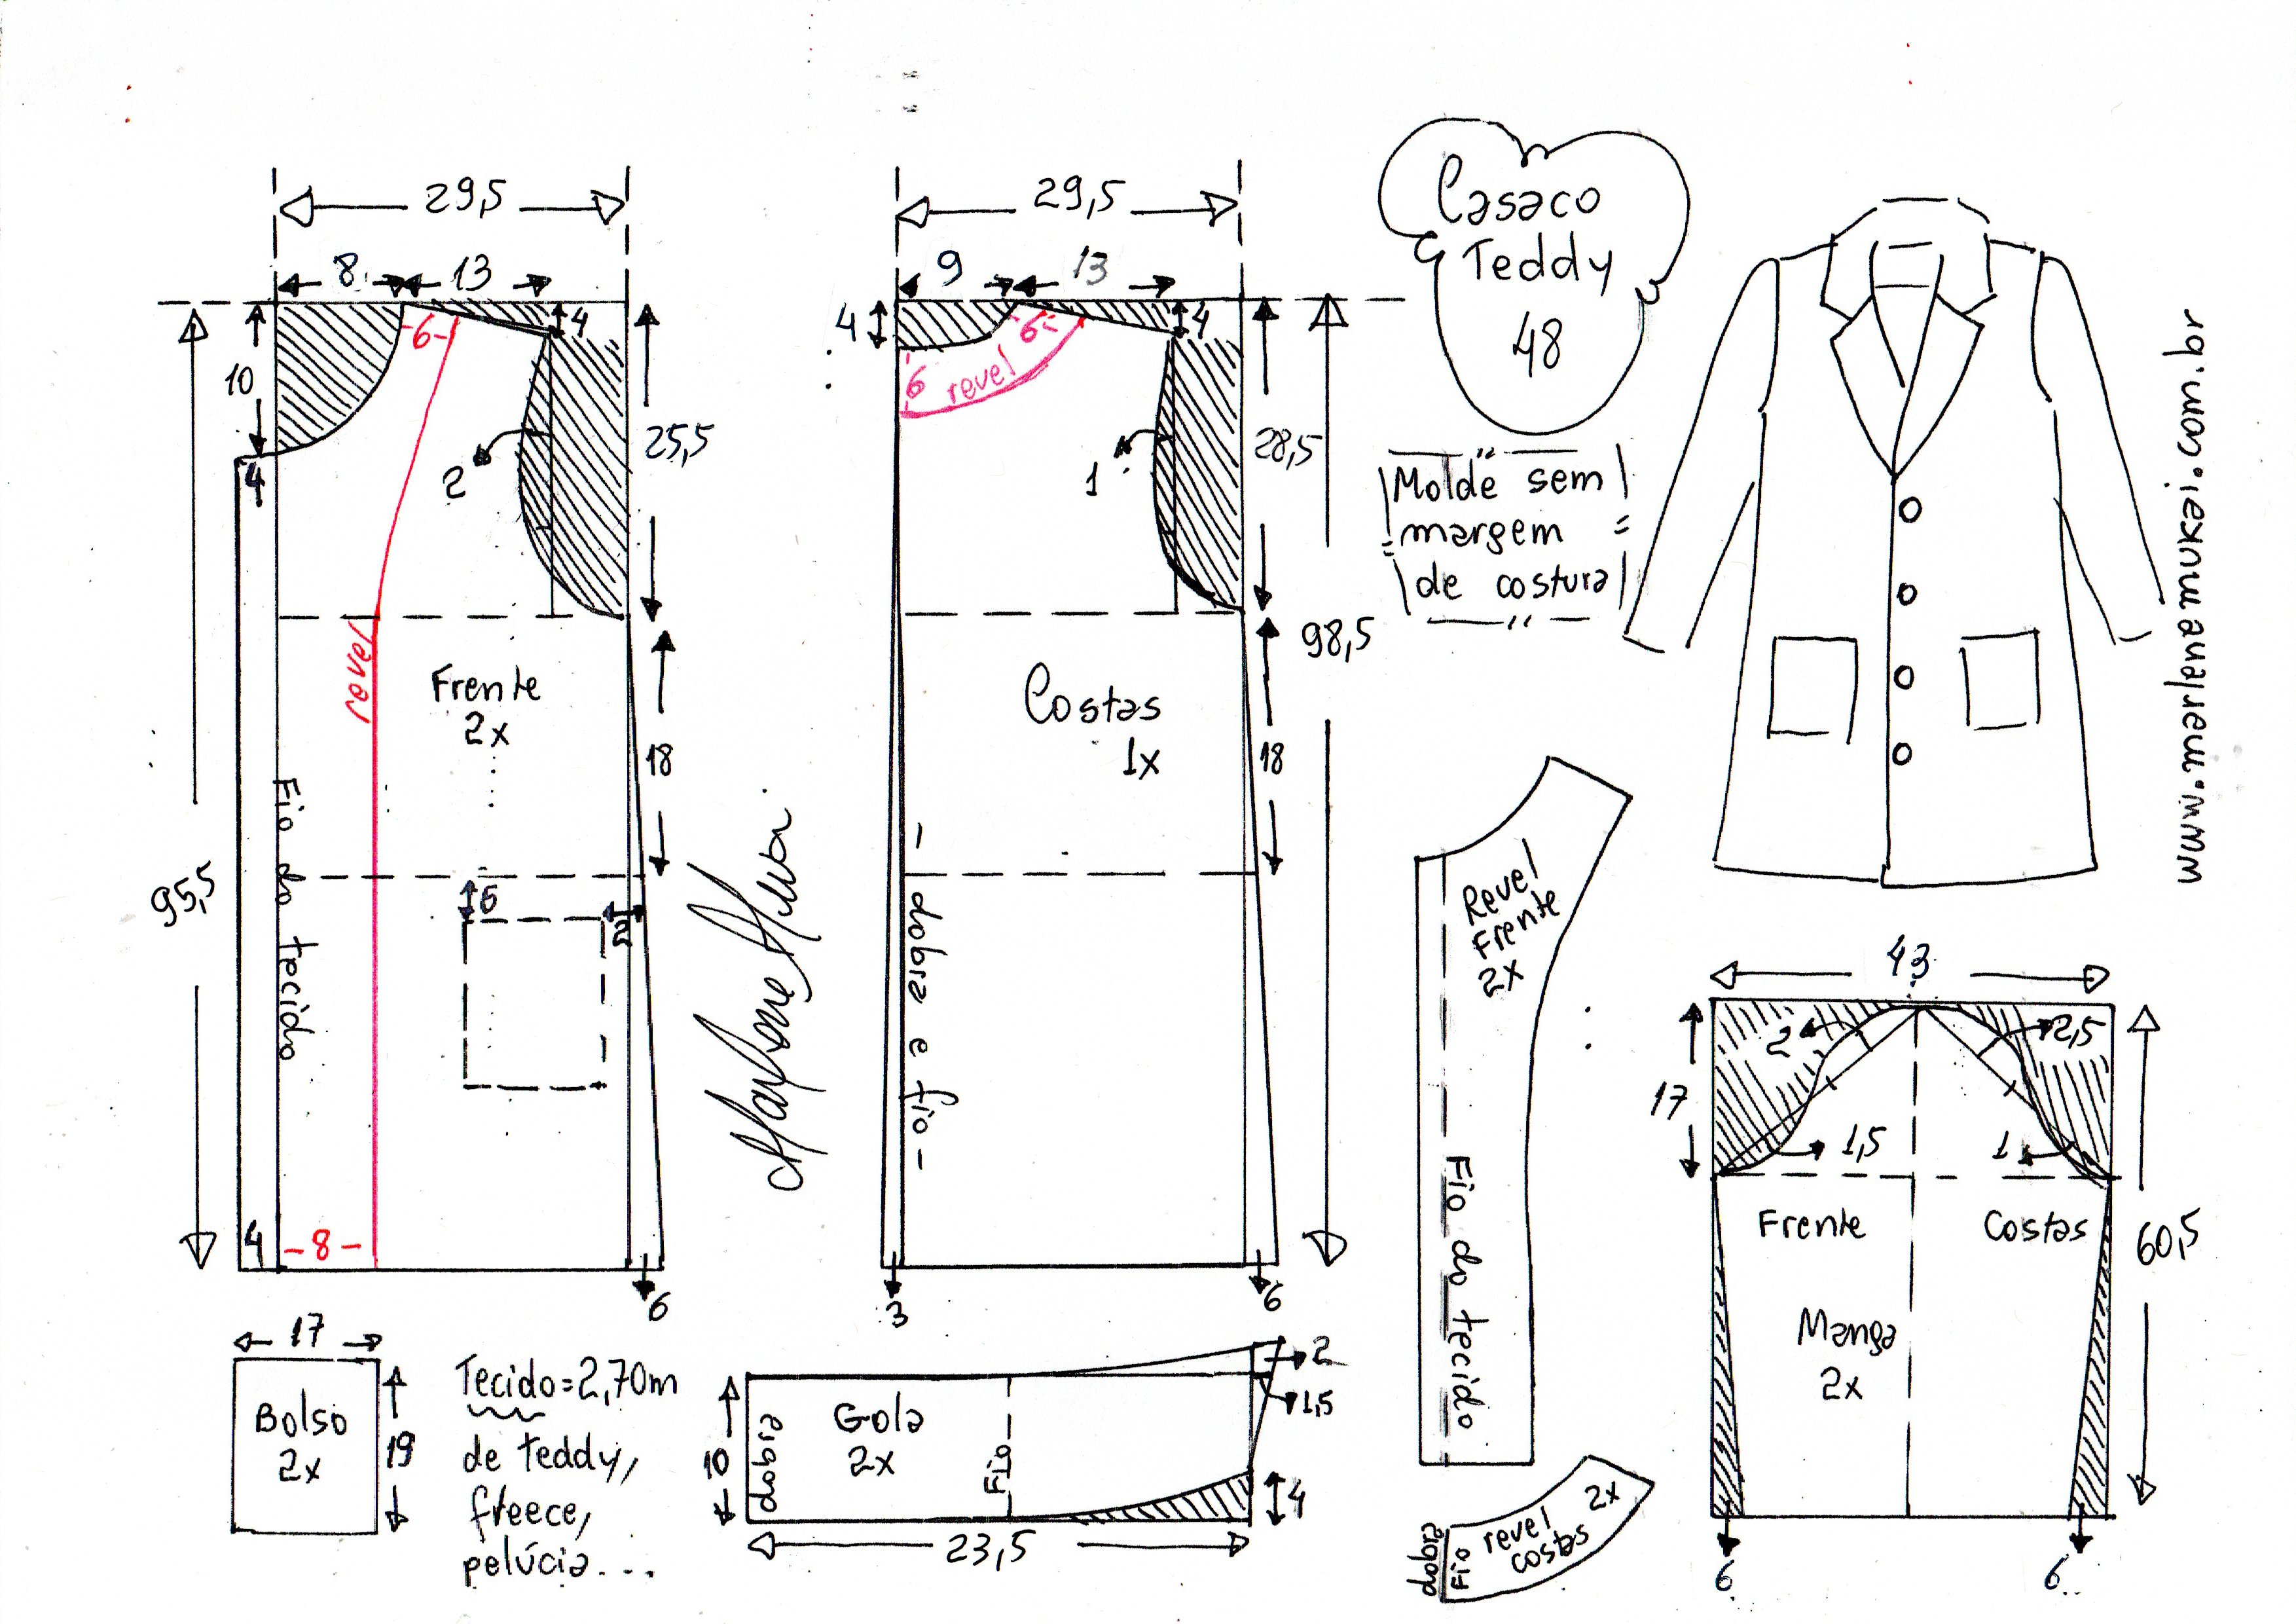 29,5
8
13
4
6
10
4
2
25,5
Frente
2x
revel
18
95,5
Fio do tecido
6
2
4
8
6
29,5
9
13
4
4
6
6
revel
1
28,5
98,5
Costas
1x
18
dobra e fio
3
6
Marlene Mukai
Casaco
Teddy
48
Molde sem
margem
de costura
www.marlenemukai.com.br
Revel
Frente
2x
Fio do tecido
43
2
2,5
17
1,5
1
Frente
Costas
60,5
Manga
2x
6
6
17
Bolso
2x
19
Tecido=2,70m
de teddy,
freece,
pelúcia...
10
dobra
Gola
2x
Fio
2
1,5
4
23,5
dobra
Fio
revel
costas
2x